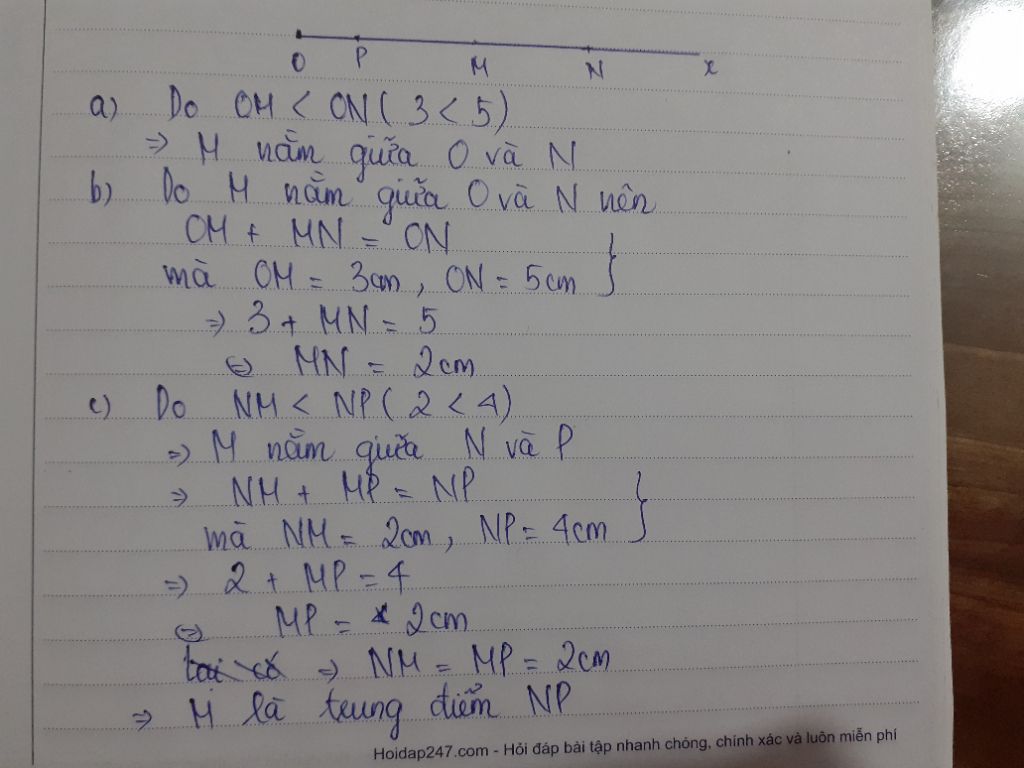 O P M N x
a) Do OM < ON ( 3 < 5 )
=> M nằm giữa O và N
b) Do M nằm giữa O và N nên
OM + MN = ON
mà OM = 3cm , ON = 5cm }
=> 3 + MN = 5
<=> MN = 2cm
c) Do NM < NP ( 2 < 4 )
=> M nằm giữa N và P
=> NM + MP = NP
mà NM = 2cm , NP = 4cm }
=> 2 + MP = 4
<=> MP = 2cm
=> NM = MP = 2cm
=> M là trung điểm NP
Hoidap247.com - Hỏi đáp bài tập nhanh chóng, chính xác và luôn miễn phí